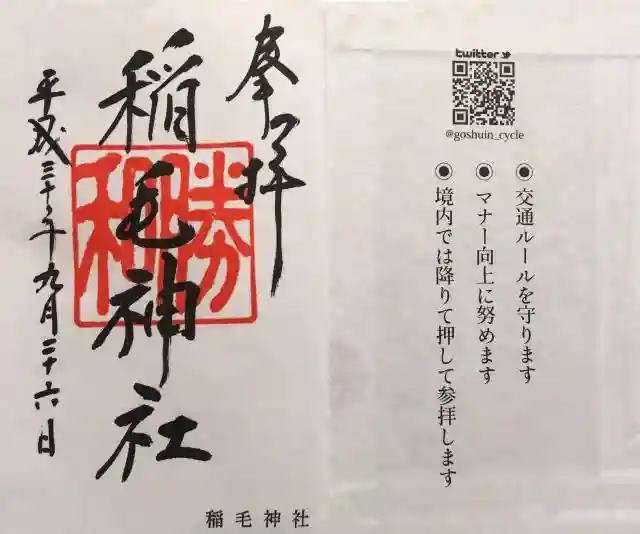 奉拝
稲毛神社
勝和
平成三十年九月二十六日
稲毛神社
twitter
@goshuin_cycle
◉ 交通ルールを守ります
◉ マナー向上に努めます
◉ 境内では降りて押して参拝します